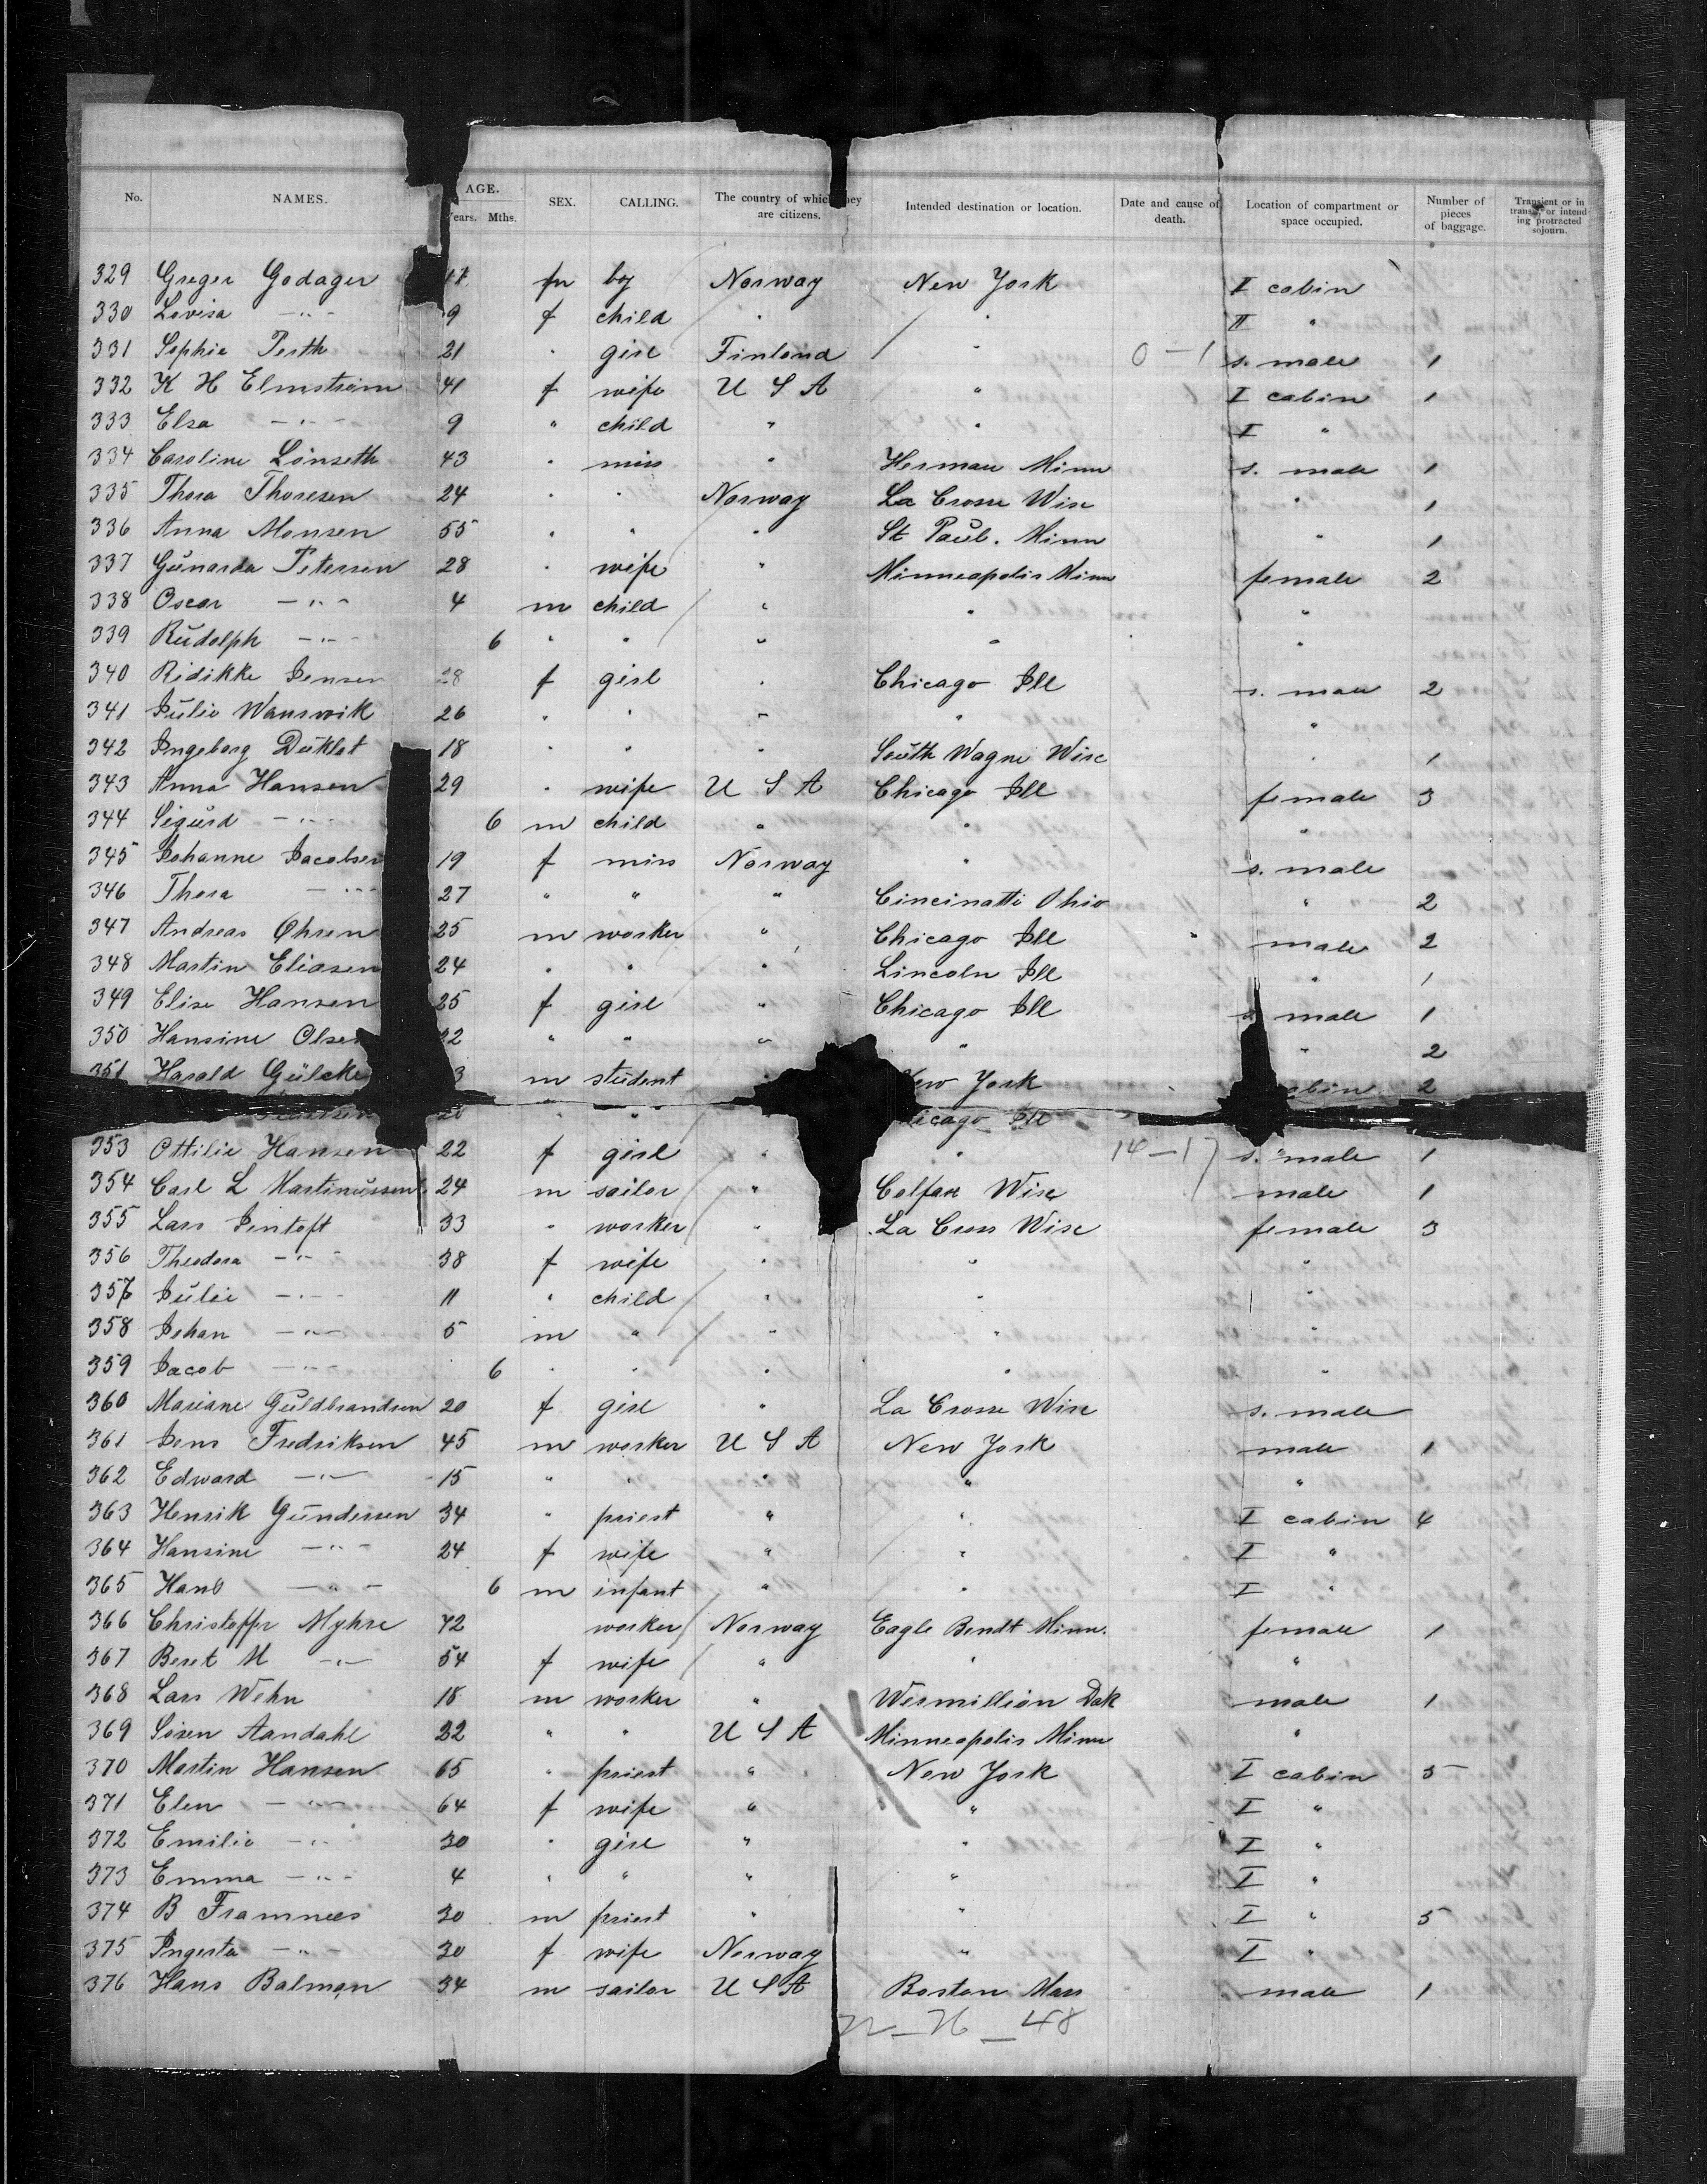 No. NAMES. AGE. Years. Mths. SEX. CALLING. The country of which they are citizens. Intended destination or location. Date and cause of death. Location of compartment or space occupied. Number of pieces of baggage. Transient or in transit or intending protracted sojourn.
329 Greger Godager m boy Norway New York I cabin
330 Lovisa -"- 9 f child " " II "
331 Sophie 21 " girl Finland " 0-1 s. male 1
332 K H Elmström 41 f wife U S A " I cabin 1
333 Elsa -"- 9 " child " " I "
334 Caroline Lönseth 43 " miss " Herman Minn s. male 1
335 Thora Thoresen 24 " " Norway La Crosse Wisc " 1
336 Anna Monsen 55 " " " St Paul. Minn " 1
337 Gunarda Petersen 28 " wife " Minneapolis Minn female 2
338 Oscar -"- 4 m child " " "
339 Rudolph -"- 6 " " " " "
340 Ridikke Jensen 28 f girl " Chicago Ill s. male 2
341 Julie Wanswik 26 " " " " "
342 Ingeborg Duklet 18 " " " South Wagne Wisc " 1
343 Anna Hansen 29 " wife U S A Chicago Ill female 3
344 Sigurd -"- 6 m child " " "
345 Johanne Jacobsen 19 f miss Norway " s. male
346 Thora -"- 27 " " " Cincinatti Ohio " 2
347 Andreas Ohren 25 m worker " Chicago Ill male 2
348 Martin Eliasen 24 " " " Lincoln Ill " 1
349 Elise Hansen 25 f girl " Chicago Ill s. male 1
350 Hansine Olsen 22 " " " " " 2
351 Harald Gülcke 3 m student New York cabin 2
" " Chicago Ill
353 Ottilie Hansen 22 f girl " " 14-17 s. male 1
354 Carl L Martinussen 24 m sailor " Colfax Wisc male 1
355 Lars Jentoft 33 " worker " La Cross Wisc female 3
356 Theodora -"- 38 f wife " " "
357 Julie -"- 11 " child " " "
358 Johan -"- 5 m " " " "
359 Jacob -"- 6 " " " " "
360 Mariane Guldbrandsen 20 f girl " La Crosse Wisc s. male
361 Jens Fredriksen 45 m worker U S A New York male 1
362 Edward -"- 15 " " " " "
363 Henrik Gundersen 34 " priest " " I cabin 4
364 Hansine -"- 24 f wife " " I "
365 Hans -"- 6 m infant " " I "
366 Christoffer Myhre 42 worker Norway Eagle Bendt Minn. female 1
367 Beret M -"- 54 f wife " " "
368 Lars Wehn 18 m worker " Wermillion Dak male 1
369 Sören Aandahl 22 " " U S A Minneapolis Minn "
370 Martin Hansen 65 " priest " New York I cabin 5
371 Elen -"- 64 f wife " " I "
372 Emilie -"- 30 " girl " " I "
373 Emma -"- 4 " " " " I "
374 B Framnees 30 m priest " " I " 5
375 Ingerta -"- 30 f wife Norway " I "
376 Hans Balman 34 m sailor U S A Boston Mass male 1
72-76-48